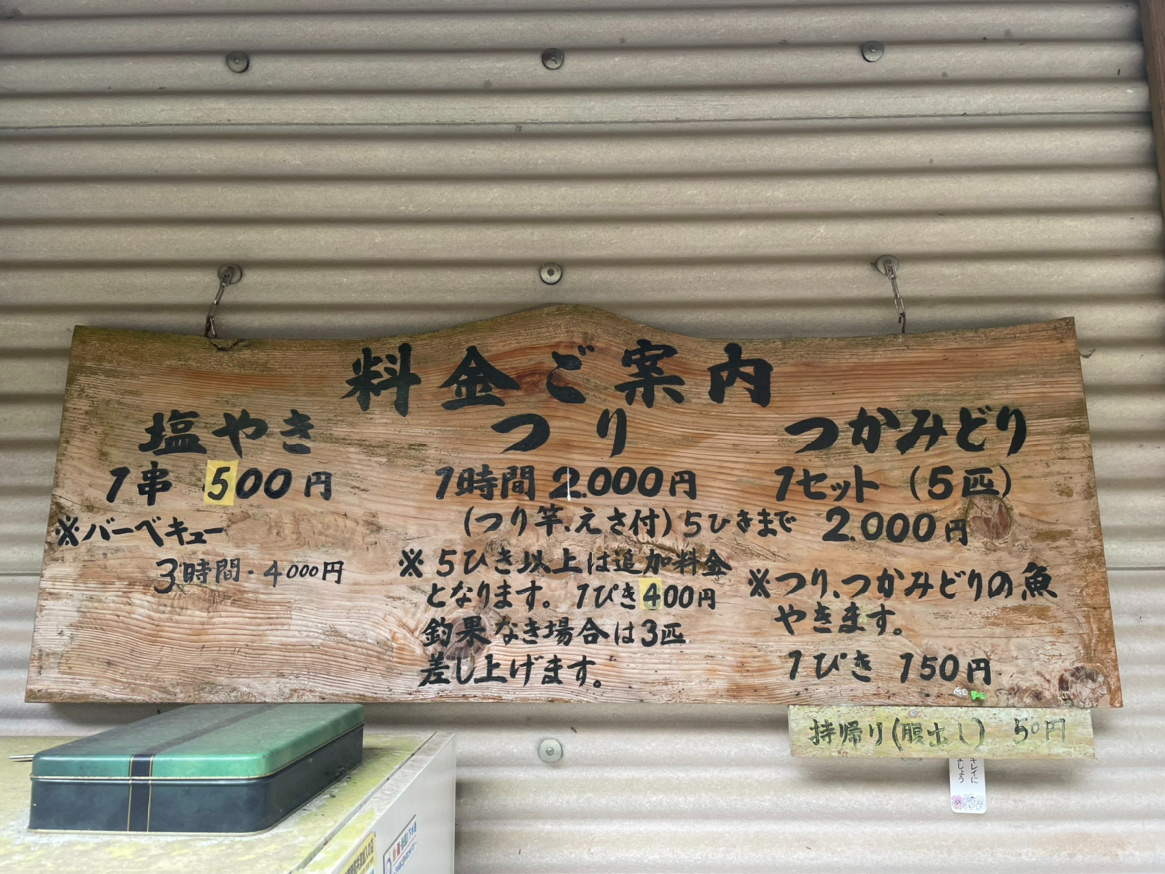 料金ご案内
塩やき
1串 500円
※バーベキュー
3時間・4000円
つり
1時間 2.000円
(つり竿.えさ付)5ひきまで
※5ひき以上は追加料金
となります。1ぴき400円
釣果なき場合は3匹
差し上げます。
つかみどり
1セット(5匹)
2.000円
※つり、つかみどりの魚
やきます。
1ぴき 150円
持帰り(腹出し) 50円
キレイに
ましょう